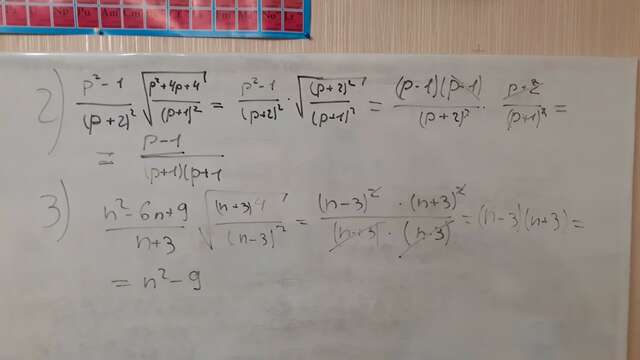 Np Pu Am Cm No Lr
2) (p² - 1)/(p+2)² √((p² + 4p + 4)/(p+1)²) = (p² - 1)/(p+2)² · √((p+2)²/(p+1)²) = (p-1)(p+1)/(p+2)² · (p+2)/(p+1)² =
= (p-1)/((p+1)(p+1
3) (n² - 6n + 9)/(n+3) √((n+3)4/(n-3)²) = ((n-3)² · (n+3)²)/((n+3) · (n-3)) = (n-3)(n+3) =
= n² - 9